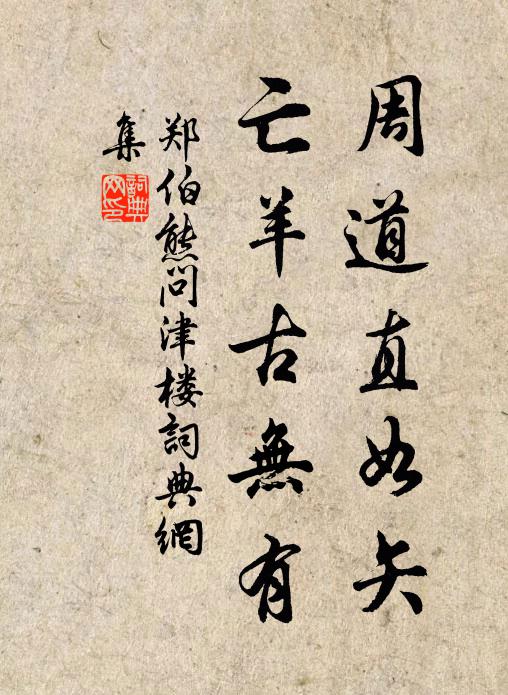 周道直如矢
亡羊古無有
郑伯熊问津楼詞典網
集
詞典
网印